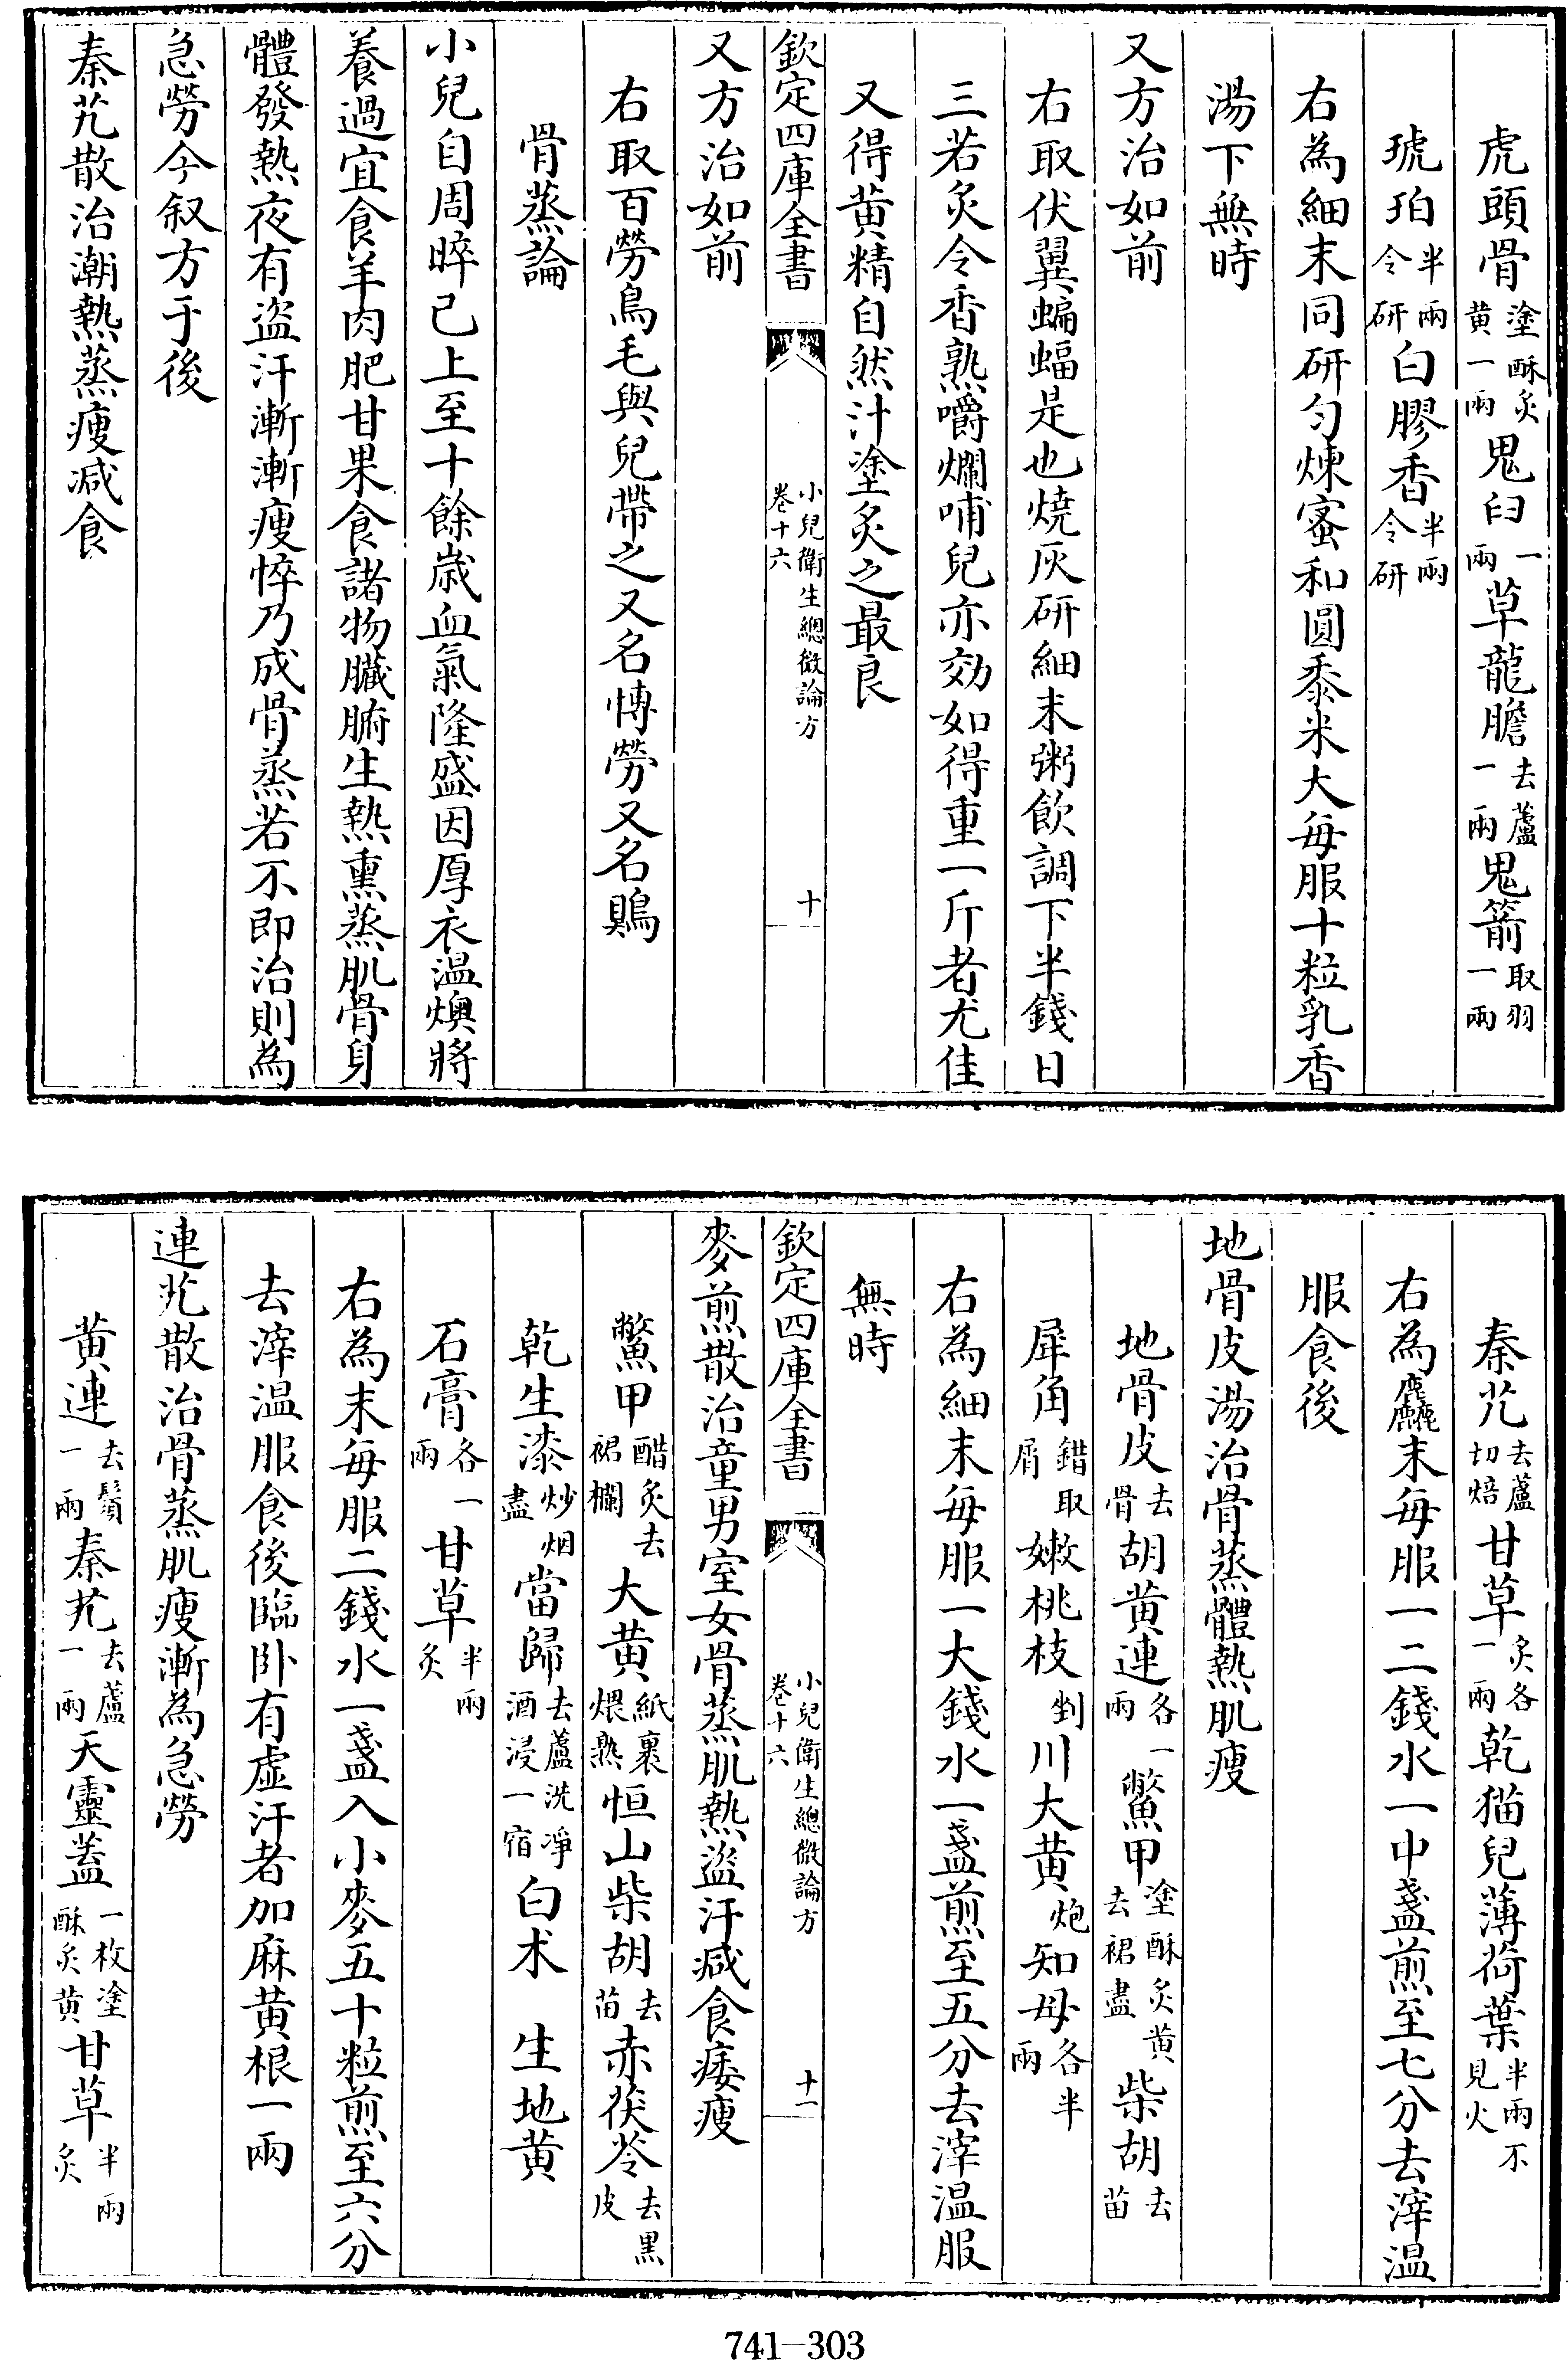 虎頭骨塗酥炙黄一兩鬼臼一兩草龍膽去蘆一兩鬼箭取羽一兩
琥珀半兩令研白膠香半兩令研
右為細末同研勻煉蜜和圓黍米大每服十粒乳香
湯下無時
又方治如前
右取伏翼蝙蝠是也燒灰研細末粥飲調下半錢日
三若炙令香熟嚼爛哺兒亦効如得重一斤者尤佳
又得黄精自然汁塗炙之最良
欽定四庫全書 小兒衛生總微論方卷十六 十
又方治如前
右取百勞鳥毛與兒帶之又名慱勞又名鶪
骨蒸論
小兒自周晬已上至十餘歲血氣隆盛因厚衣温燠將
養過宜食羊肉肥甘果食諸物臟腑生熱熏蒸肌骨身
體發熱夜有盜汗漸漸瘦悴乃成骨蒸若不即治則為
急勞今叙方于後
秦艽散治潮熱蒸瘦減食
秦艽去蘆切焙甘草炙各一兩乾猫兒薄荷葉半兩不見火
右為麤末每服一二錢水一中盞煎至七分去滓温
服食後
地骨皮湯治骨蒸體熱肌瘦
地骨皮去骨胡黄連各一兩鱉甲塗酥炙黄去裙盡柴胡去苗
犀角錯取屑嫩桃枝剉川大黄炮知母各半兩
右為細末每服一大錢水一盞煎至五分去滓温服
無時
欽定四庫全書 小兒衛生總微論方卷十六 十一
麥煎散治童男室女骨蒸肌熱盜汗減食痿瘦
鱉甲醋炙去裙欄大黄紙裹煨熟恒山柴胡去苗赤茯苓去黑皮
乾生漆炒烟盡當歸去蘆洗凈酒浸一宿白朮 生地黄
石膏各一兩甘草半兩炙
右為末每服二錢水一盞入小麥五十粒煎至六分
去滓温服食後臨卧有虛汗者加麻黄根一兩
連艽散治骨蒸肌瘦漸為急勞
黄連去鬚一兩秦艽去蘆一兩天靈葢一枚塗酥炙黄甘草半兩炙
741-303